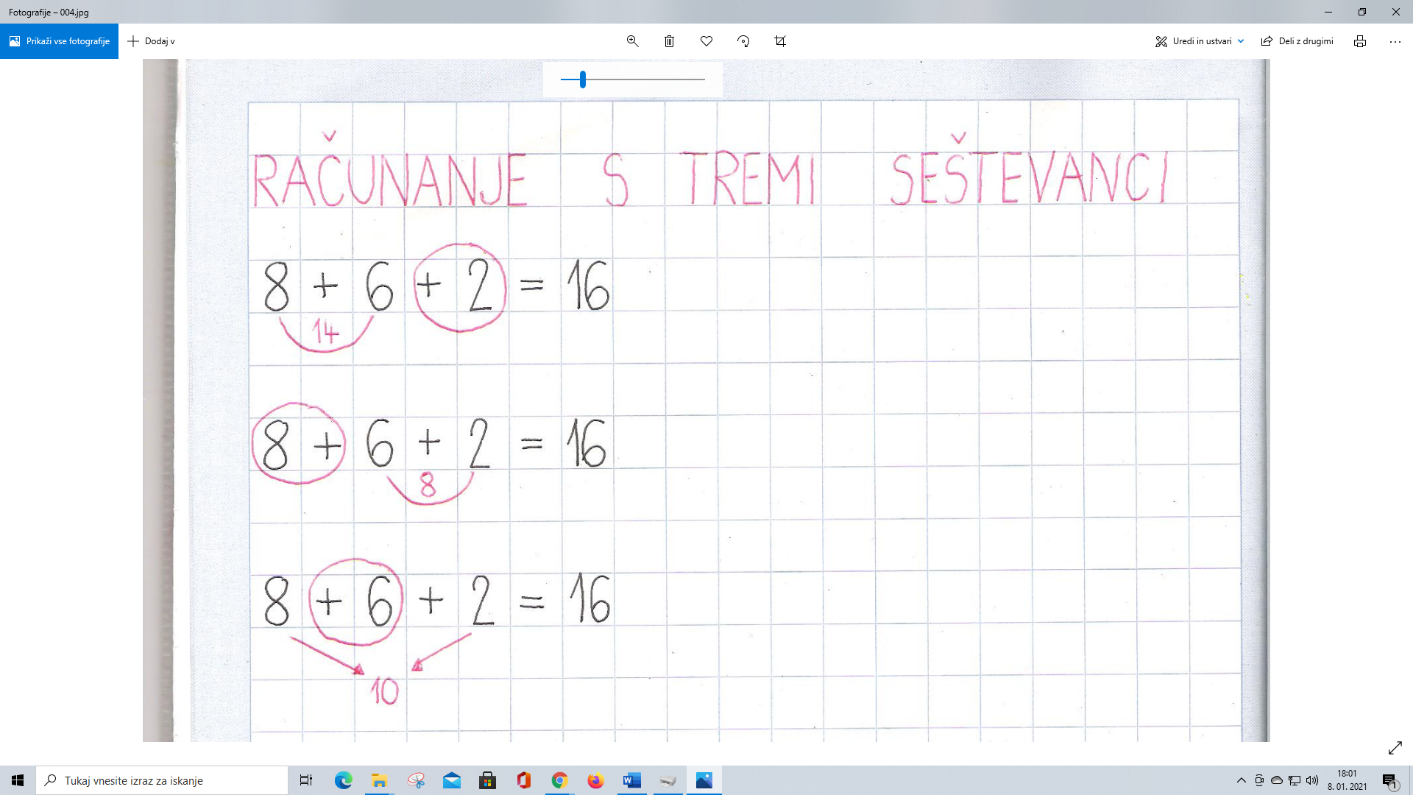 Fotografije – 004.jpg
Prikaži vse fotografije
Dodaj v
Uredi in ustvari
Deli z drugimi
RAČUNANJE S TREMI SEŠTEVANCI
8 + 6 + 2 = 16
14
8 + 6 + 2 = 16
8
8 + 6 + 2 = 16
10
Tukaj vnesite izraz za iskanje
18:01
8. 01. 2021
1